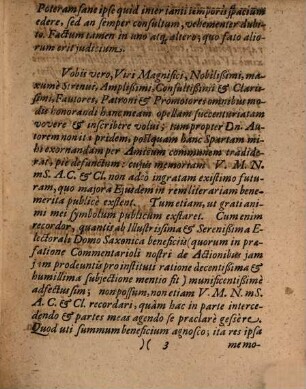 Poteram sane ipse quid interfanti temporis spacium
edere, sed an semper consultum, vehementer dubi-
to. Factum tamen in uno atq; altero; quo fato alio-
rum erit judicium.
Vobis vero, Viri Magnifici, Nobilissimi, ma-
xumè Strenui, Amplissimi, Consultissimi & Claris-
simi, Fautores, Patroni & Promotores omnibus mo-
dis honorandi hanc meam opellam succenturiatam
vovere & inscribere volui; tum propter Dn. Au-
torem nonita pridem, postquam hanc Spartam mi-
hi exornandam per Amicum communem tradide-
rat, piè defunctum: cujus memoriam V. M. N.
mS. A. C. & Cl. non adeò ingratam existimo futu-
ram, quo majora Ejusdem in rem literariam bene-
merita publicè exstent. Tum etiam, ut grati ani-
mi mei symbolum publicum exstaret. Cum enim
recordor, quantis ab Illustrissima & Serenissima E-
lectorali Domo Saxonica beneficiis (quorum in præ-
fatione Commentarioli nostri de Actionibus jam
jam prodeuntis pro instituti ratione decentissima &
humillima subjectione mentio fit) munificentissimè
adfectus sim; non possum, non etiam V. M. N. mS.
A. C. & Cl. recordari, quàm hac in parte interce-
dendo & partes meas agendo se præclarè gesserê.
Quod uti summum beneficium agnosco; ita res ipsa
)( 3 memo-